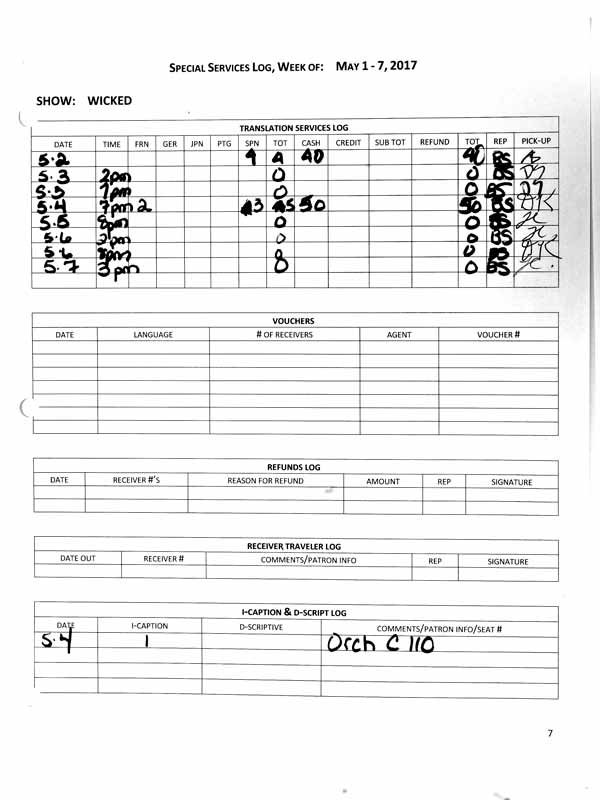 SPECIAL SERVICES LOG, WEEK OF: MAY 1 - 7, 2017
SHOW: WICKED
TRANSLATION SERVICES LOG
DATE TIME FRN GER JPN PTG SPN TOT CASH CREDIT SUB TOT REFUND TOT REP PICK-UP
5.2 40 40 BS
5.3 2pm 0 0 BS
5.3 7pm 0 0 BS
5.4 7pm 2 3 5 50 50 BS
5.5 8pm 0 0 BS
5.6 2pm 0 0 BS
5.6 8pm 0 0 BS
5.7 3pm 0 BS
VOUCHERS
DATE LANGUAGE # OF RECEIVERS AGENT VOUCHER #
REFUNDS LOG
DATE RECEIVER #'S REASON FOR REFUND AMOUNT REP SIGNATURE
RECEIVER TRAVELER LOG
DATE OUT RECEIVER # COMMENTS/PATRON INFO REP SIGNATURE
I-CAPTION & D-SCRIPT LOG
DATE I-CAPTION D-SCRIPTIVE COMMENTS/PATRON INFO/SEAT #
5.4 1 Orch C 110
7